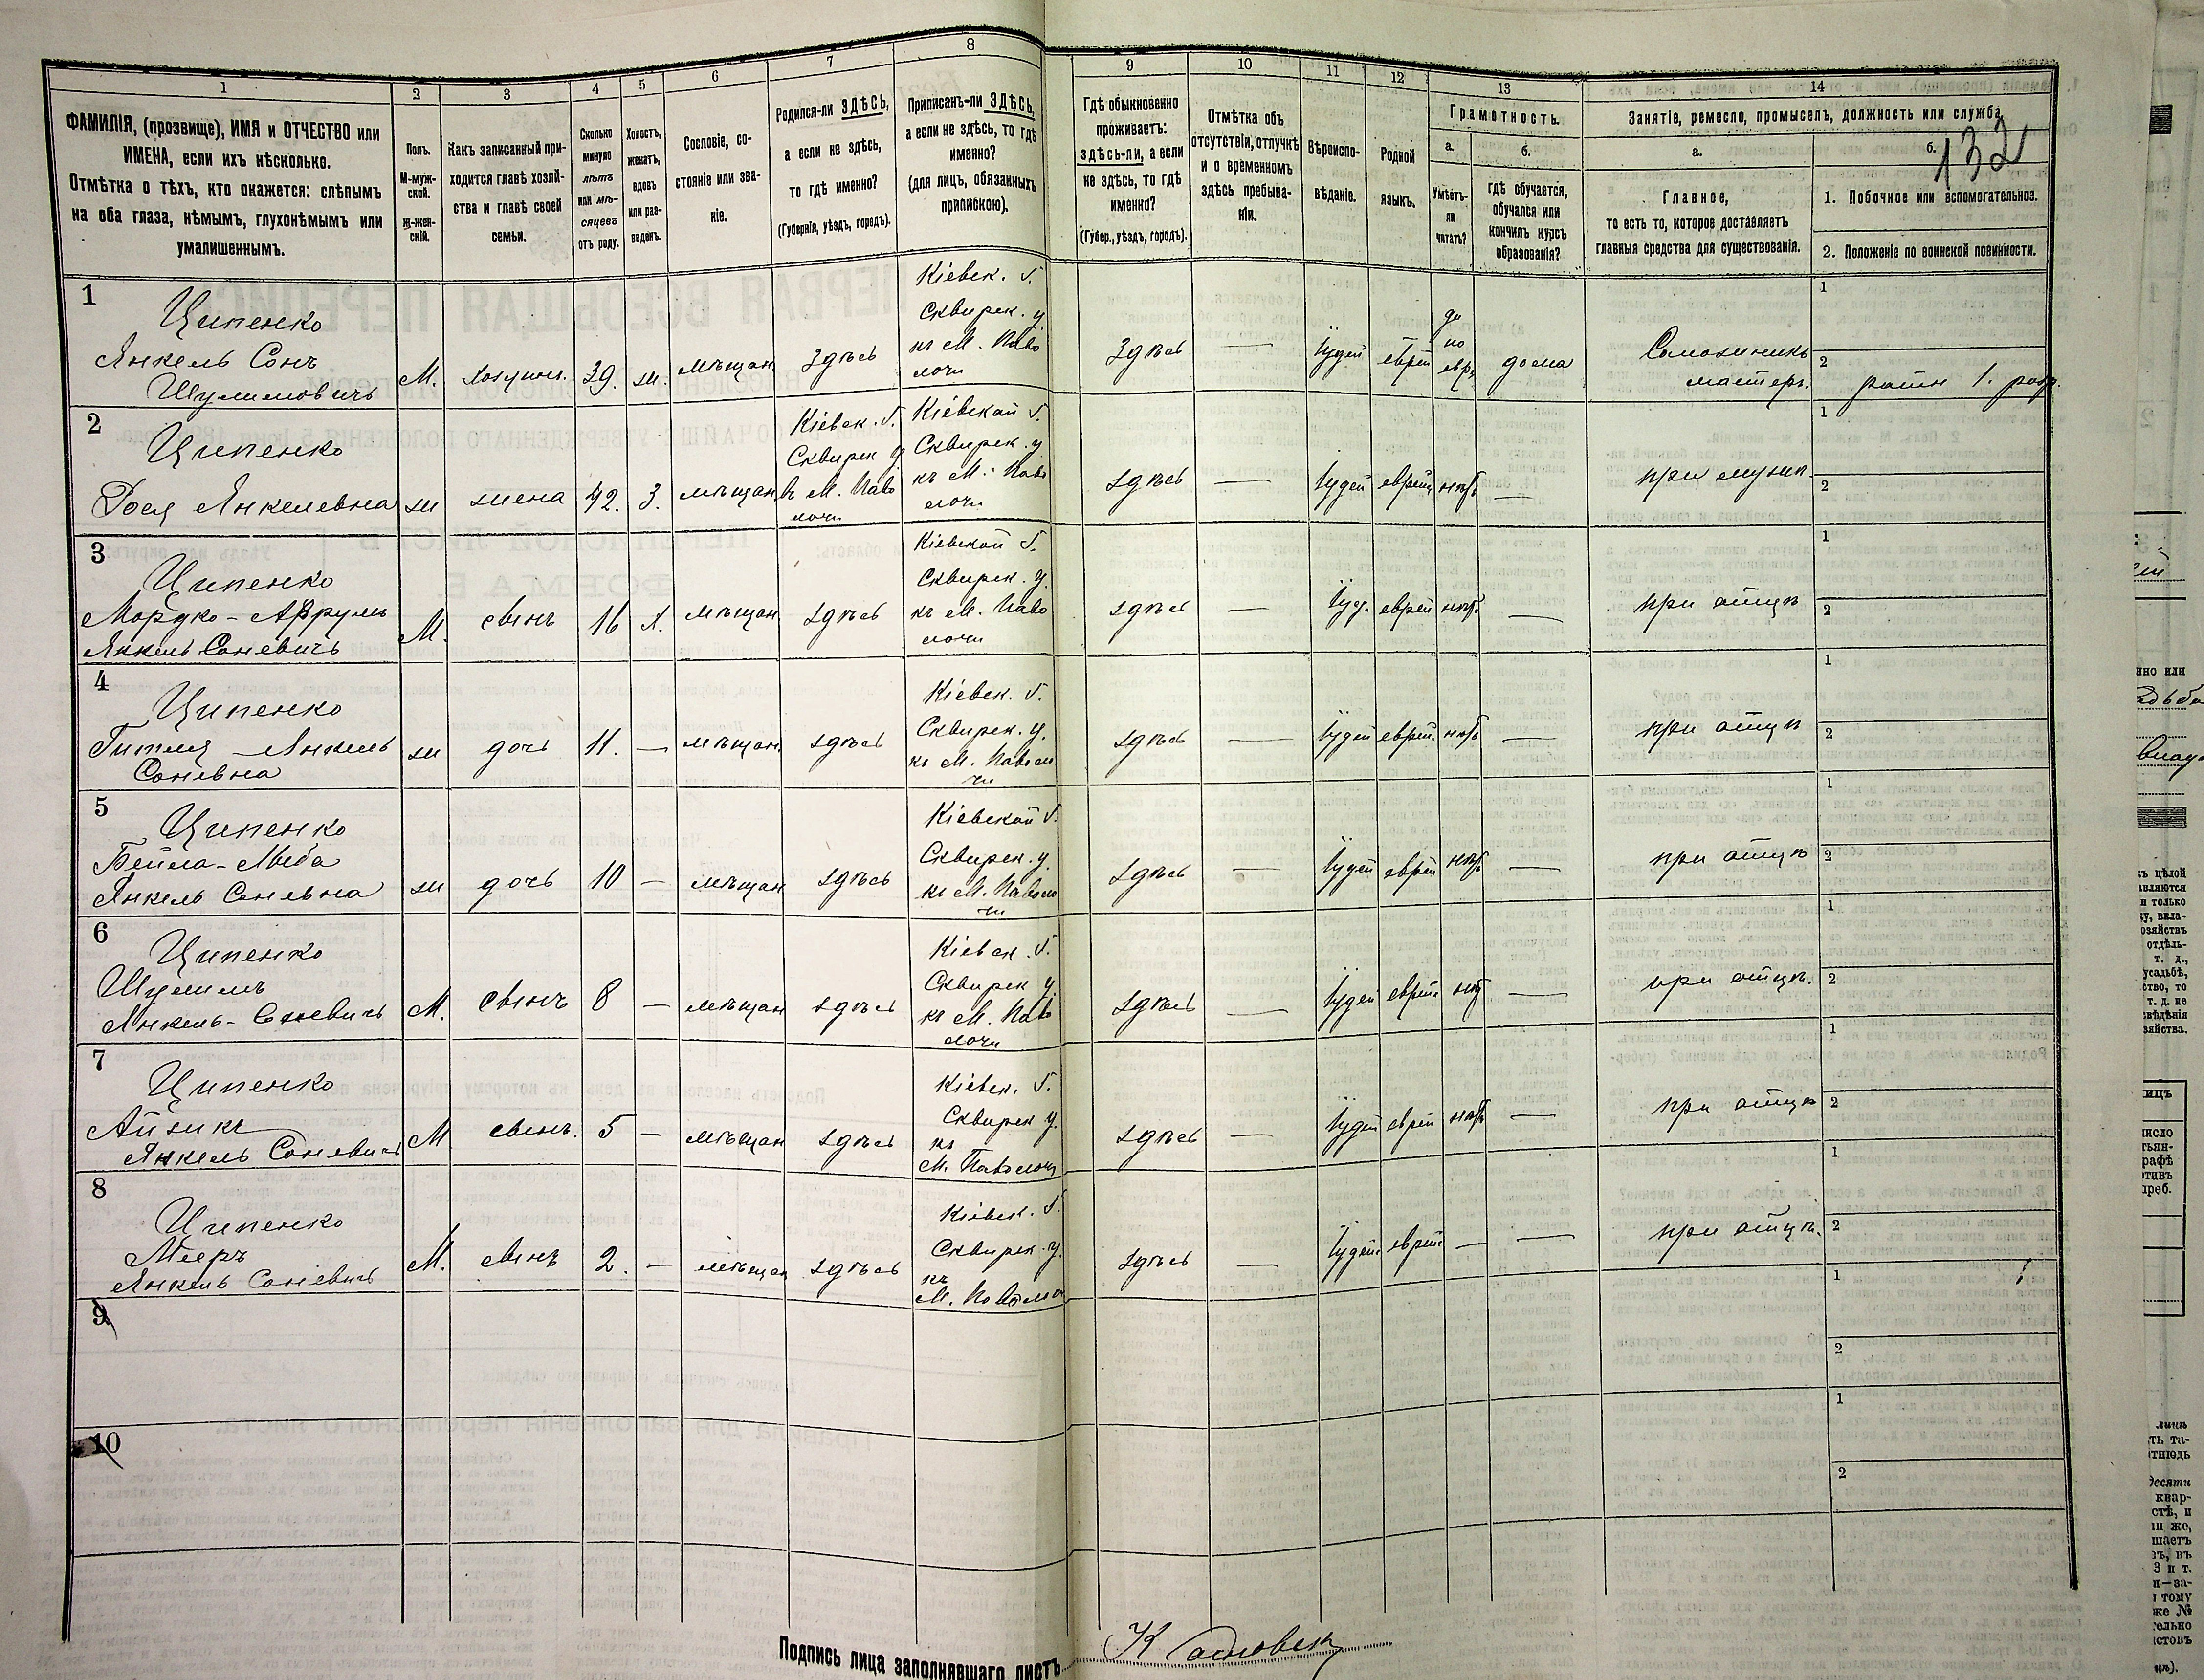 1
2
3
4
5
6
7
8
9
10
11
12
13
14
ФАМИЛІЯ, (прозвище), ИМЯ и ОТЧЕСТВО или
ИМЕНА, если ихъ нѣсколько.
Отмѣтка о тѣхъ, кто окажется: слѣпымъ
на оба глаза, нѣмымъ, глухонѣмымъ или
умалишеннымъ.
Полъ.
М-муж-
ской.
Ж-жен-
скій.
Какъ записанный при-
ходится главѣ хозяй-
ства и главѣ своей
семьи.
Сколько
минуло
лѣтъ
или мѣ-
сяцевъ
отъ роду.
Холостъ,
женатъ,
вдовъ
или раз-
веденъ.
Сословіе, со-
стояніе или зва-
ніе.
Родился-ли ЗДѢСЬ,
а если не здѣсь,
то гдѣ именно?
(Губернія, уѣздъ, городъ).
Приписанъ-ли ЗДѢСЬ,
а если не здѣсь, то гдѣ
именно?
(для лицъ, обязанныхъ
припискою).
Гдѣ обыкновенно
проживаетъ:
здѣсь-ли, а если
не здѣсь, то гдѣ
именно?
(Губер., уѣздъ, городъ).
Отмѣтка объ
отсутствіи, отлучкѣ
и о временномъ
здѣсь пребыва-
ніи.
Вѣроиспо-
вѣданіе.
Родной
языкъ.
Грамотность.
а.
Умѣетъ-
ли
читать?
б.
гдѣ обучается,
обучался или
кончилъ курсъ
образованія?
Занятіе, ремесло, промыселъ, должность или служба.
а.
Главное,
то есть то, которое доставляетъ
главныя средства для существованія.
б.
132
1. Побочное или вспомогательное.
2. Положеніе по воинской повинности.
1
Ципенко
Янкель Сонъ
Шулимовичъ
М.
хозяинъ.
39.
ж.
мѣщан
Здѣсь
Кіевск. г.
Сквирск. у.
къ М. Паво
лочи
Здѣсь
—
Іудей
еврей
да
по
евр.
дома
мастеръ.
1
2
ратн 1. разр.
2
Ципенко
Янкелевна
ж
жена
42.
З.
мѣщан
Кіевск. г.
Сквирск у
въ М. Паво
лочи
Кіевской г.
Сквирск. у
къ М. Паво
лочи
здѣсь
—
Іудей
еврей
нѣтъ
—
при мужѣ.
1
2
3
Ципенко
Мордко-Аврумъ
Янкель Соневичъ
М.
сынъ
16
х.
мѣщан
здѣсь
Кіевской г.
Сквирск. у.
къ М. Паво
лочи
здѣсь
—
Іуд.
еврей
нѣтъ
—
при отцѣ
1
2
4
Ципенко
Гитля - Янкель
Соневна
ж
дочь
11.
—
мѣщан
здѣсь
Кіевск. г.
Сквирск. у.
къ М. Паволо
чи
здѣсь
—
Іудей
еврей.
нѣтъ
—
при отцѣ
1
2
5
Ципенко
Янкель Соневна
ж
дочь
10
—
мѣщан
здѣсь
Кіевской г.
Сквирск. у.
къ М. Паволо
чи
здѣсь
—
Іудей
еврей
нѣтъ
—
при отцѣ
1
2
6
Ципенко
Шулимъ
Янкель-Соневичъ
М.
сынъ
8
—
мѣщан
здѣсь
Кіевск. г.
Сквирск у.
къ М. Паво
лочи
здѣсь
—
Іудей
еврей.
нѣт
—
при отцѣ.
1
2
7
Ципенко
Айзикъ
Янкель Соневичъ
М
сынъ.
5
—
мѣщан
здѣсь
Кіевск. г.
Сквирск у.
къ
М. Паволочи
здѣсь
—
Іудей
еврей
нѣтъ
—
при отцѣ
1
2
8
Ципенко
Мееръ
Янкель Соневичъ
М.
сынъ
2.
—
мѣщан
здѣсь
Кіевск. г.
Сквирск. у.
къ
здѣсь
—
Іудей.
еврей.
—
—
при отцѣ.
1
2
9
1
2
10
1
2
Подпись лица заполнявшаго листъ